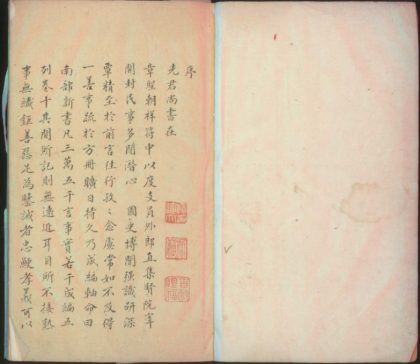 序
先君尚書在
章聖朝祥符中以度支員外郎直集賢院宰
開封民事多閒潛心　國史博聞强識研深
覃精至於前言往行孜孜念慮常如不及得
一善事疏於方冊曠日持久乃成編軸命曰
南部新書凡三萬五千言事實若干成編五
列卷十其間所記則無遠近耳目所不接熟
事無纖鉅善惡足為鑒誡者忠鯁孝義可以